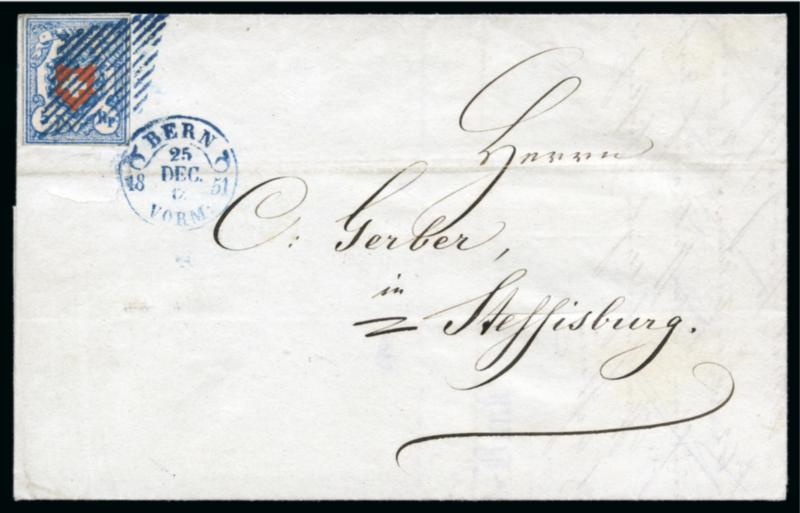 Kr
BERN
25
DEC.
18 51
VORM.
Herrn
C: Gerber,
in
Steffisburg.